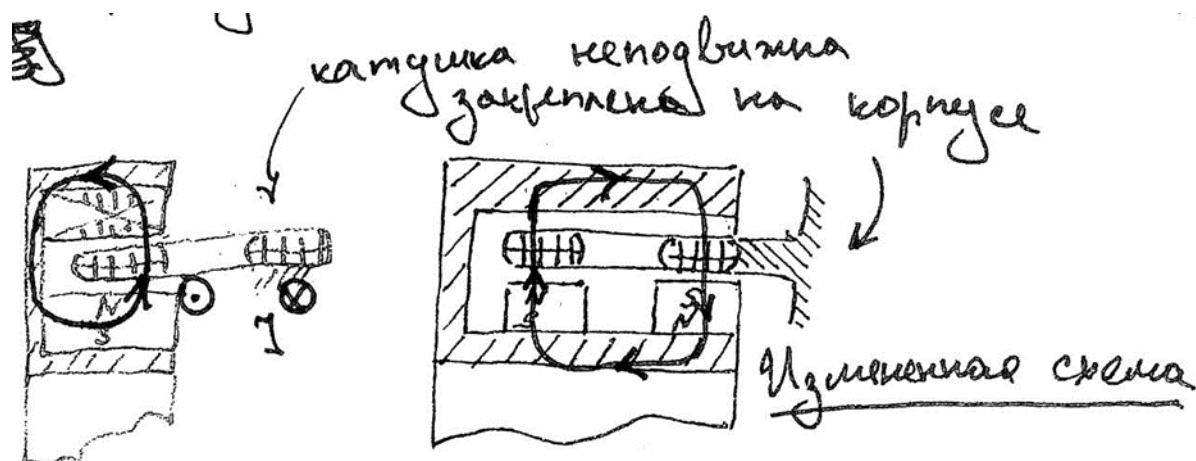 катушка неподвижна
закреплена на корпусе
N
S
N
S
N
S
Измененная схема